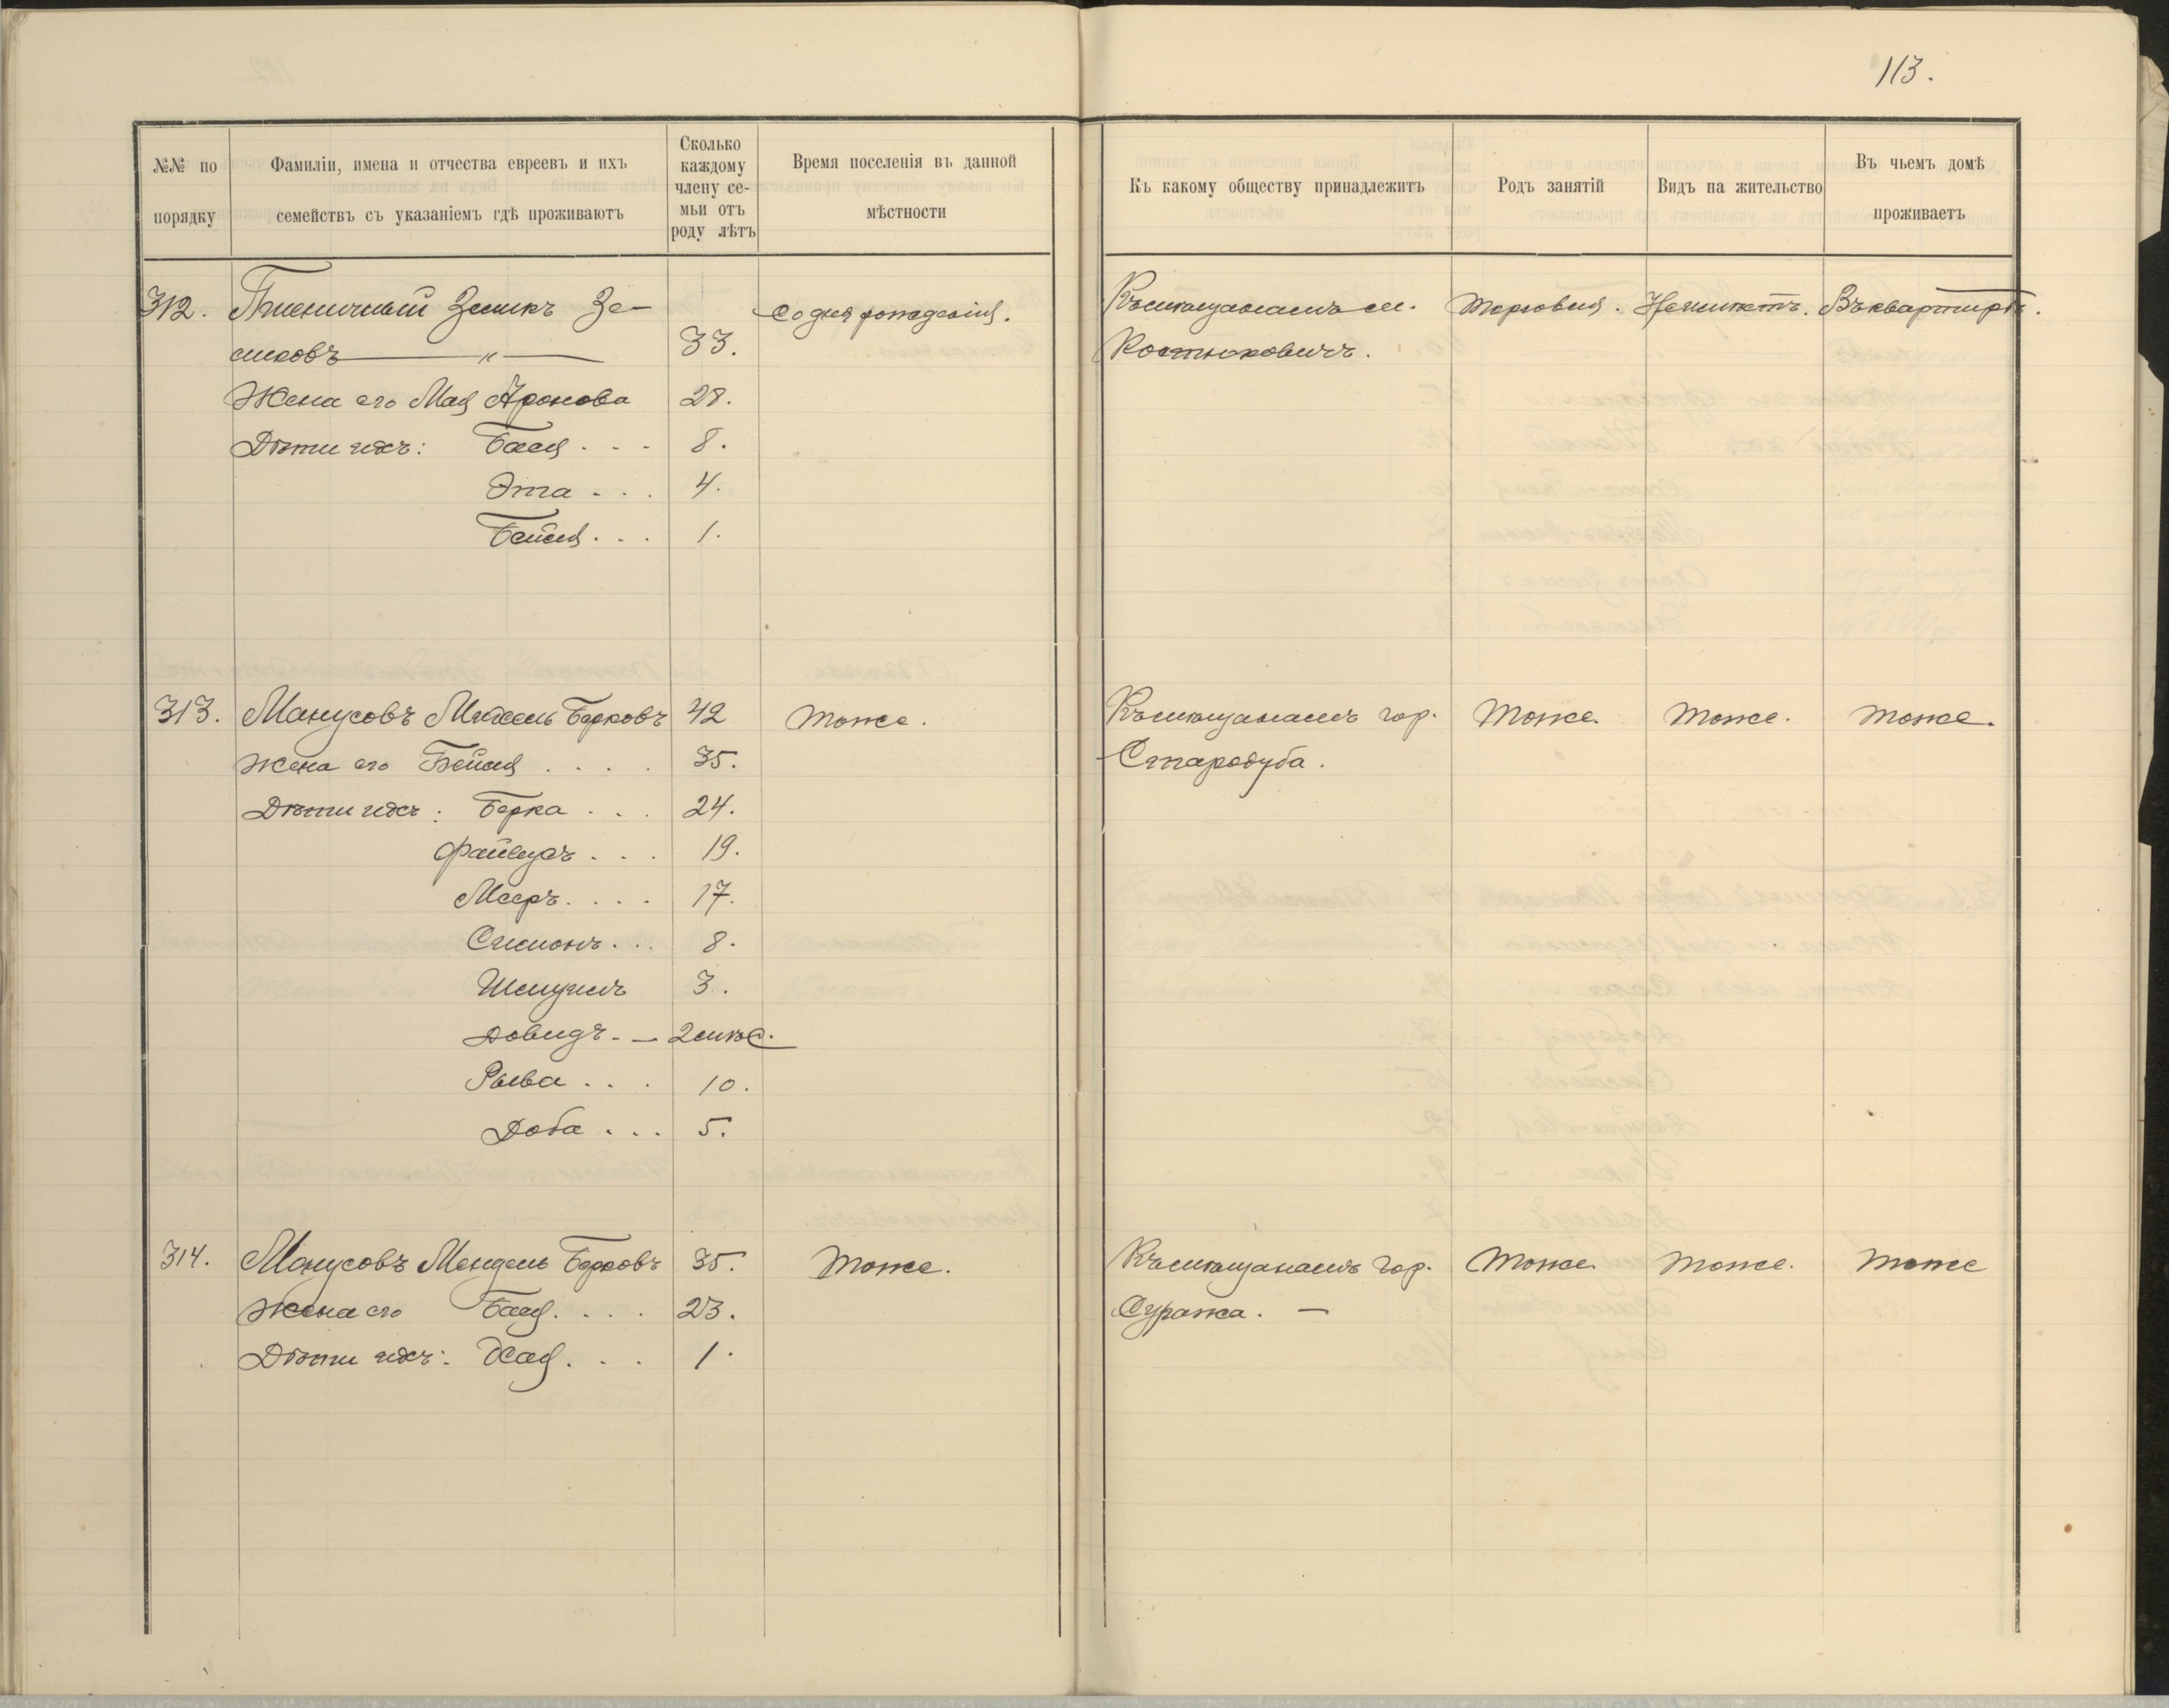 113.
№№ по порядку
Фамиліи, имена и отчества евреевъ и ихъ семействъ съ указаніемъ гдѣ проживаютъ
Сколько каждому члену се-мьи отъ роду лѣтъ
Время поселенія въ данной мѣстности
Къ какому обществу принадлежитъ
Родъ занятій
Видъ на жительство
Въ чьемъ домѣ проживаетъ
312. Пшеничный Зеликъ Зе- Со дня рожденія. Къ мѣщанамъ м. Торговля. Неимѣетъ. Въ квартирѣ.
ликовъ — „ — 33. Костюковичъ.
Жена его Мая Аронова 28.
Дѣти ихъ: Бася . . . 8.
Эта . . . 4.
Бейля . . . 1.
313. Манусовъ Берковъ 42 Тоже. Къ мѣщанамъ гор. Тоже. Тоже. Тоже.
Жена его Бейля . . . . 35. Стародуба.
Дѣти ихъ: Берка . . . 24.
. . . 19.
Мееръ . . . . 17.
Симонъ . . . 8.
Шмуилъ 3.
Довидъ - — 2 мѣс.
Рыва . . . 10.
Доба . . . 5.
314. Манусовъ Мендель Берковъ 35. Тоже. Къ мѣщанамъ гор. Тоже. Тоже. Тоже
Жена его Бася . . . . 23. Суража. —
Дѣти ихъ: Хая . . . 1.